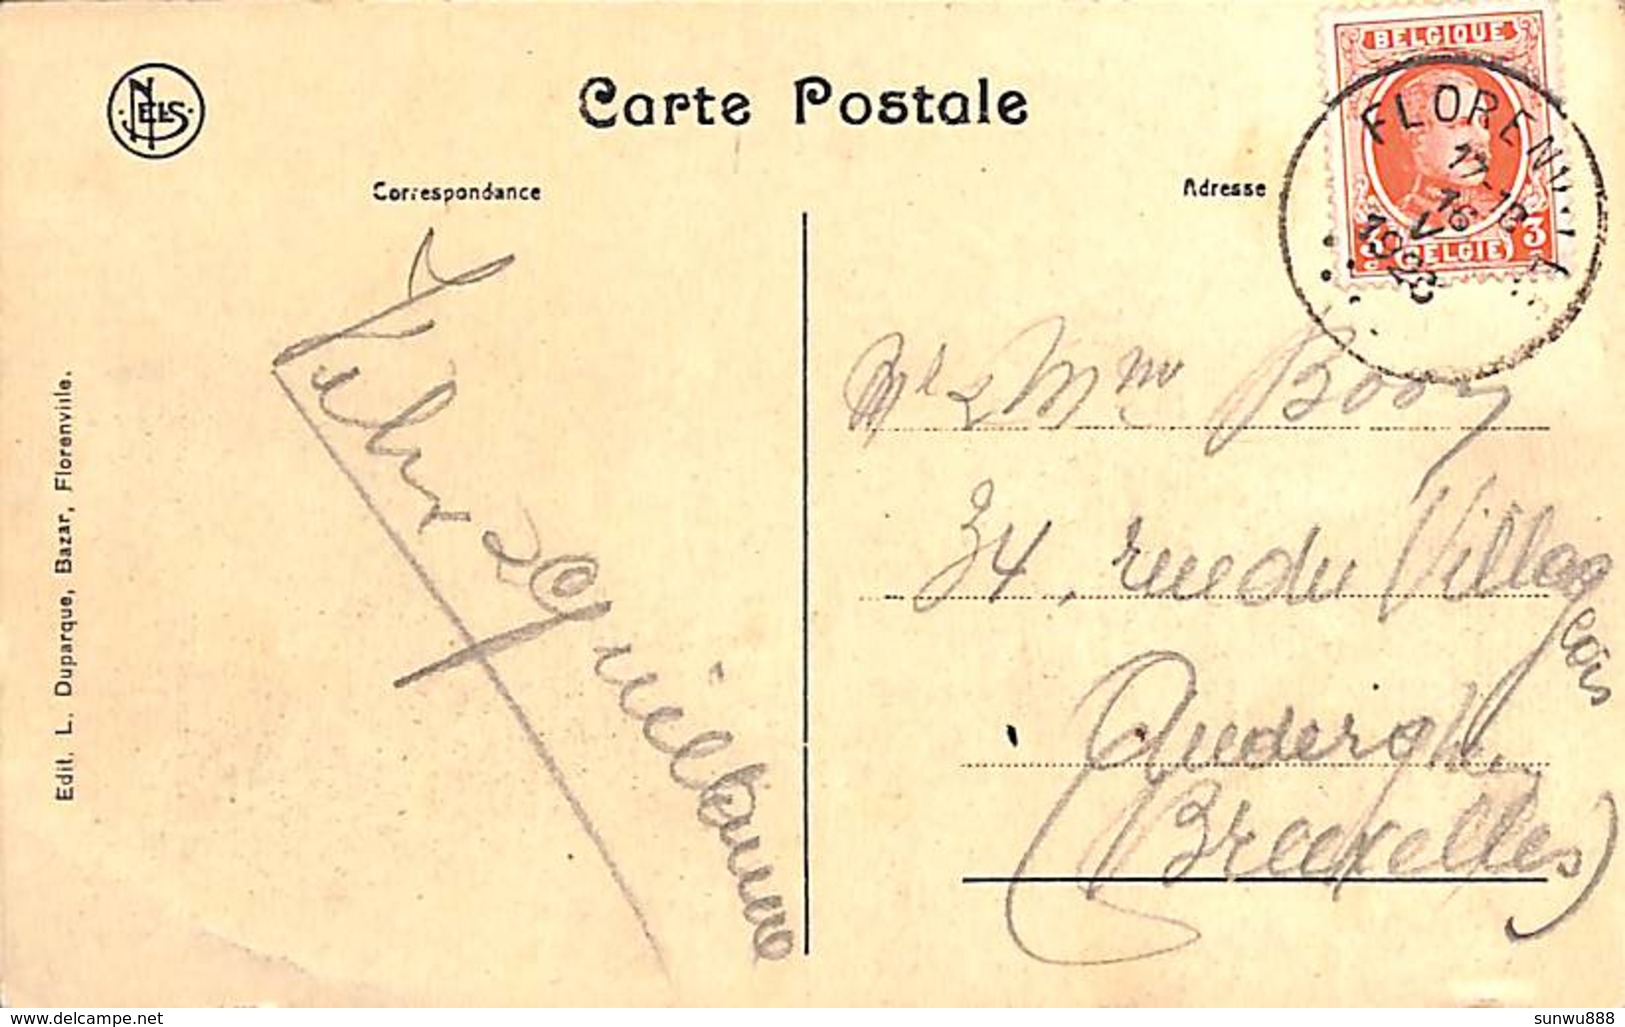 NELS
Carte Postale
Correspondance
Adresse
BELGIQUE
3 3
BELGIE
FLORENVILLE
17-18
16
V
1923
Edit. L. Duparque, Bazar, Florenville.
Guillaume
Ml & Mme Booy
34, rue du Villag
eois
Auderghem
(Bruxelles)
www.delcampe.net
sunwu888